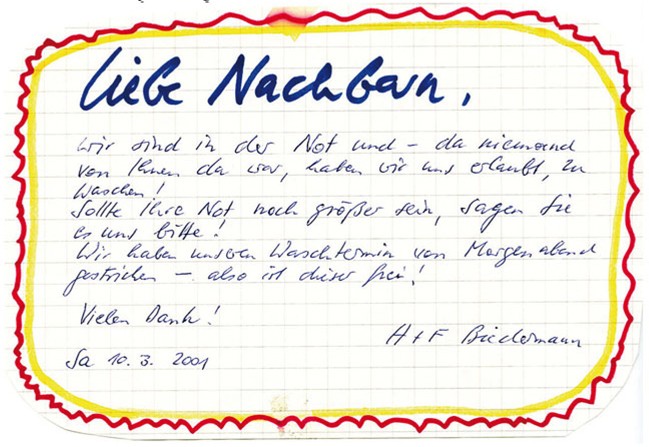 Liebe Nachbarn,
wir sind in der Not und – da niemand
von Ihnen da war, haben wir uns erlaubt, zu
waschen!
Sollte Ihre Not noch größer sein, sagen Sie
es uns bitte!
Wir haben unseren Waschtermin von Morgenabend
gestrichen – also ist dieser frei!
Vielen Dank!
H + F Biedermann
Sa 10. 3. 2001